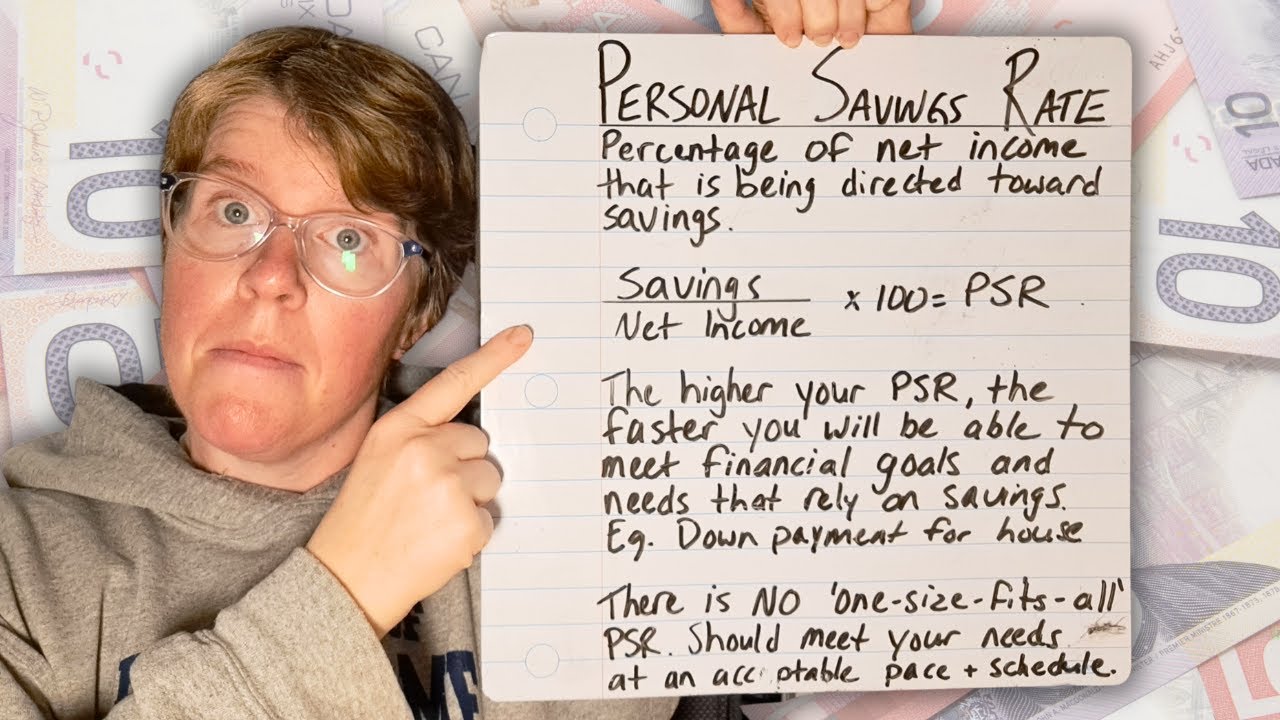 PERSONAL SAVINGS RATE
Percentage of net income
that is being directed toward
savings.
Savings
Net Income
x 100 = PSR
The higher your PSR, the
faster you will be able to
meet financial goals and
needs that rely on savings.
Eg. Down payment for house
There is NO 'one-size-fits-all'
PSR. Should meet your needs
at an acceptable pace + schedule.
10
10
10
CANADA
AHJ6